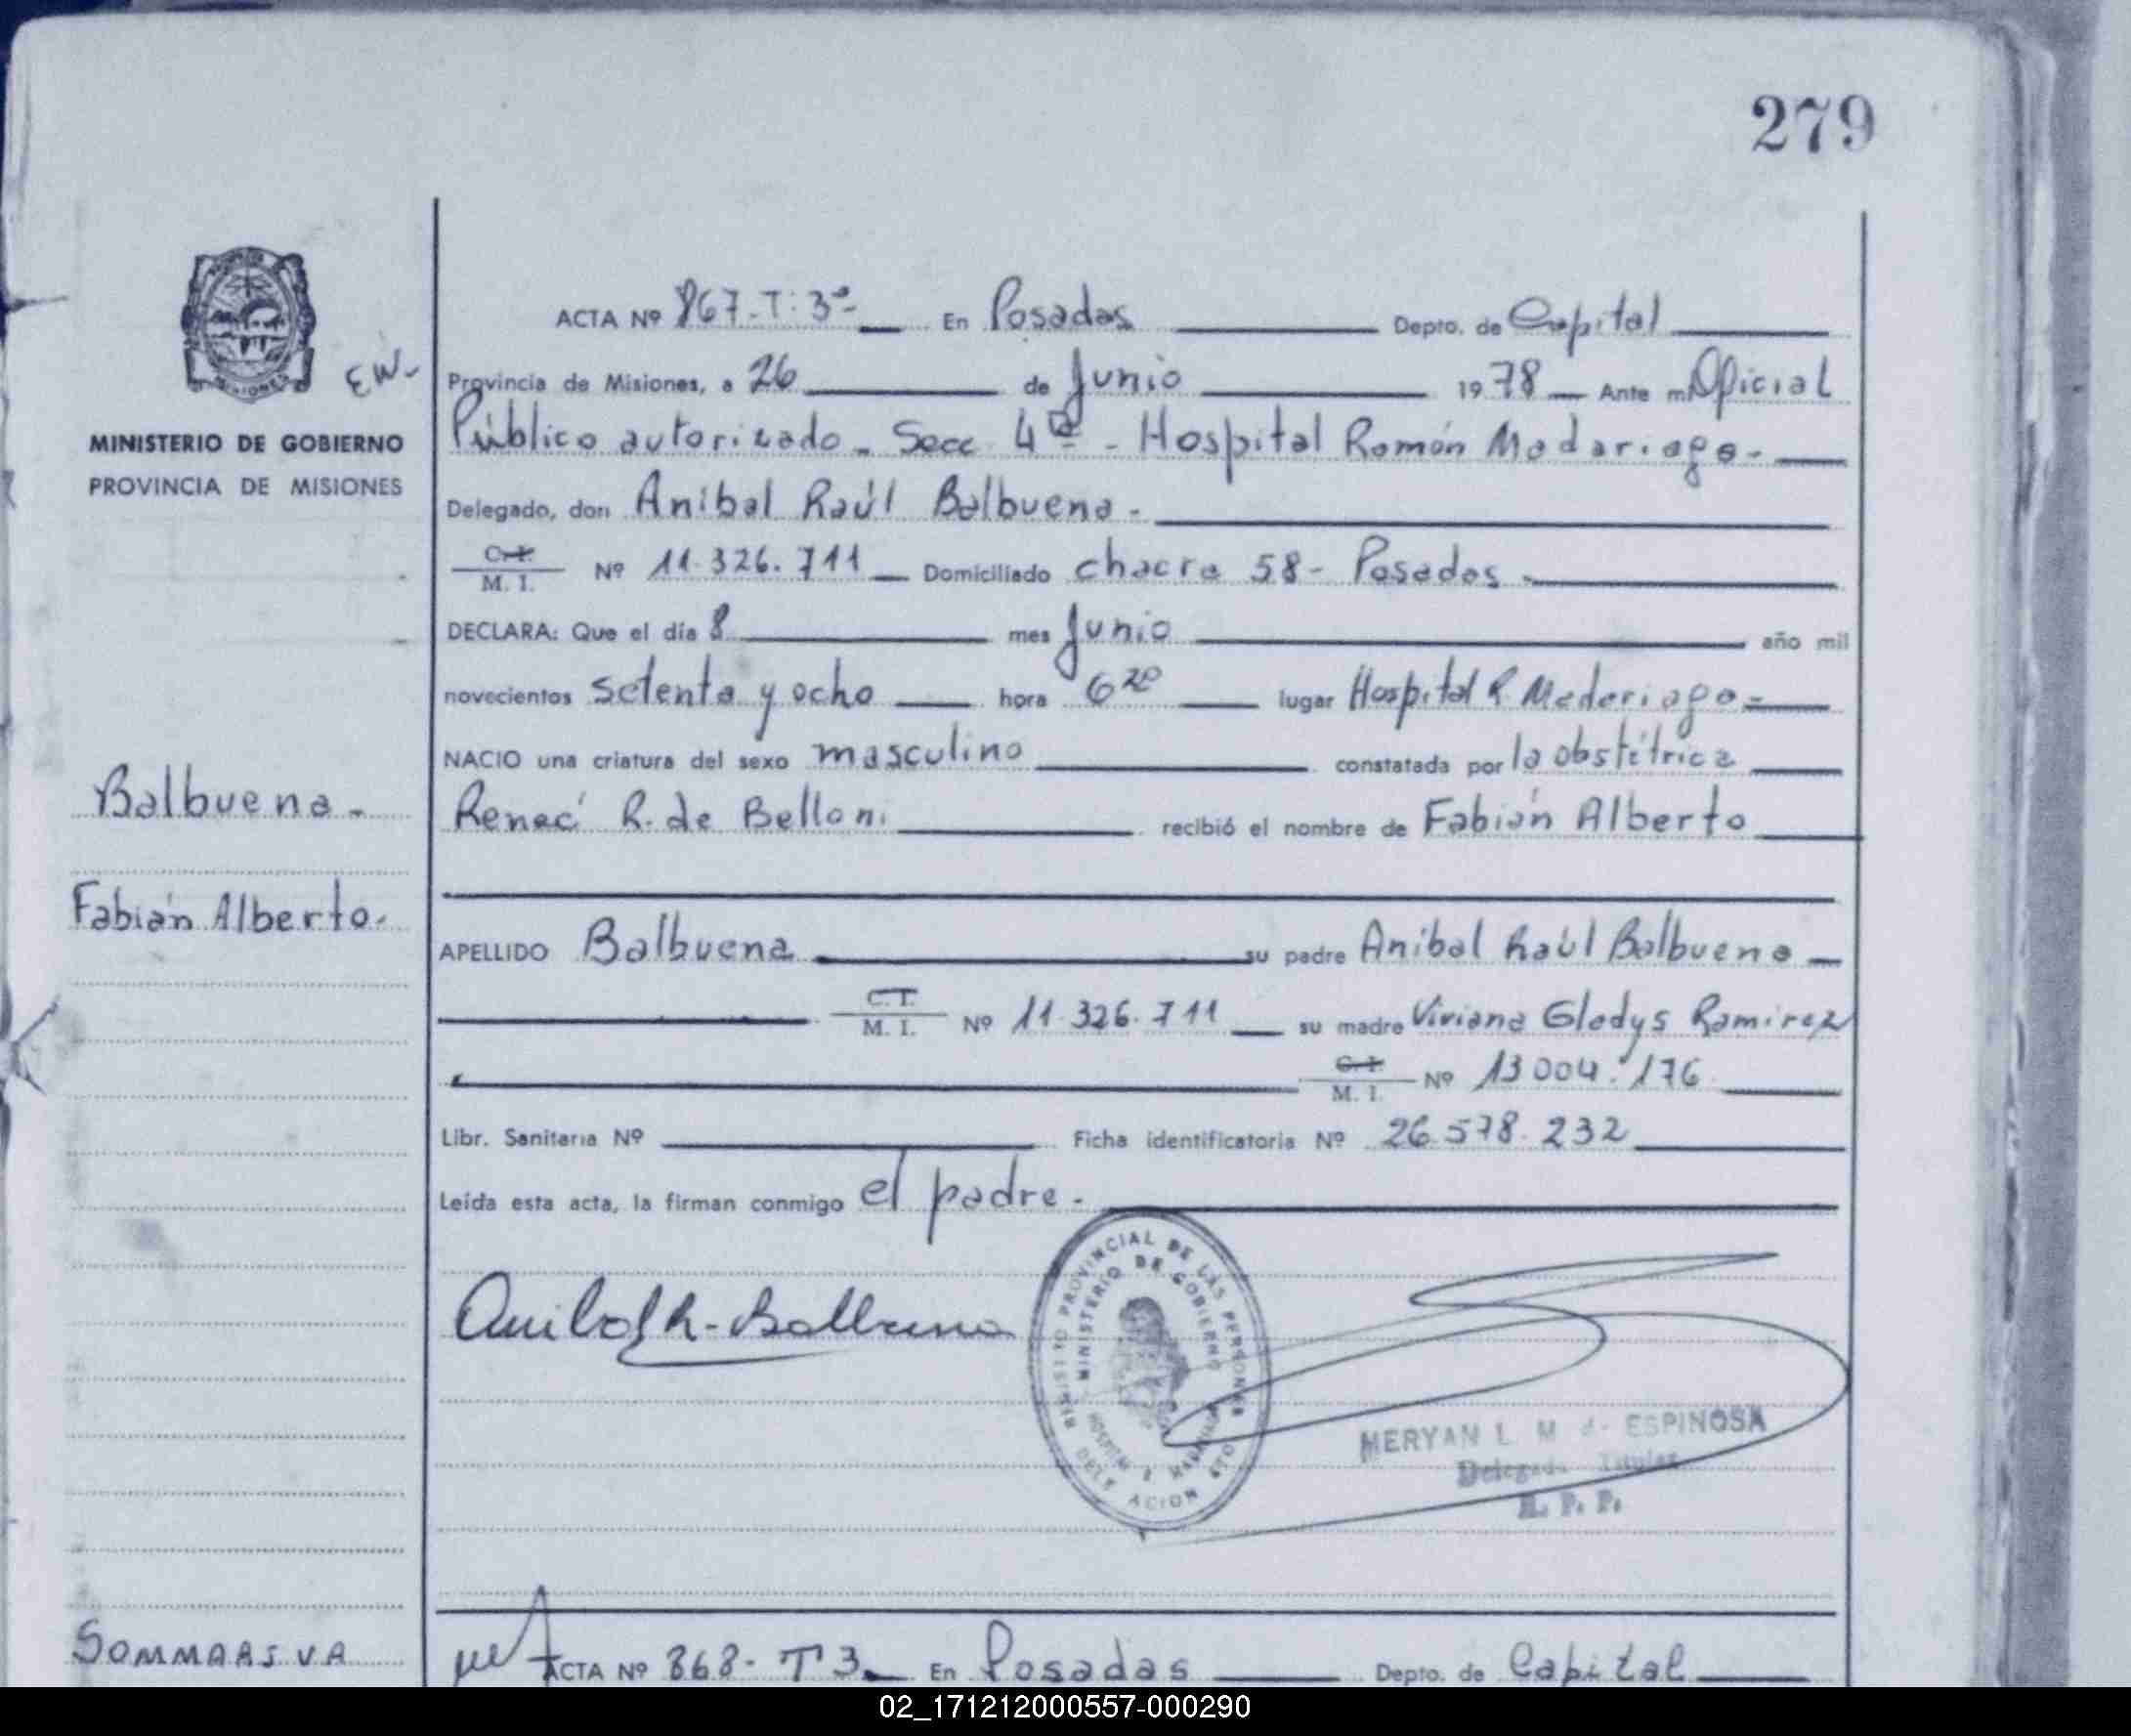 279
ACTA Nº 867-T:3º- En Posadas Depto. de Capital
EW-
Provincia de Misiones, a 26 de Junio 1978 Ante mi Oficial
MINISTERIO DE GOBIERNO
PROVINCIA DE MISIONES
Público autorizado - Secc 4ª - Hospital Ramón Madariaga -
Delegado, don Aníbal Raúl Balbuena -
C.I. M. I. Nº 11.326.711 Domiciliado chacra 58 - Posadas -
DECLARA: Que el día 8 mes Junio año mil
novecientos setenta y ocho hora 6 20 lugar Hospital R. Madariaga -
NACIO una criatura del sexo masculino constatada por la obstétrica
Balbuena -
Reneé R. de Belloni recibió el nombre de Fabián Alberto
Fabián Alberto.
APELLIDO Balbuena su padre Aníbal Raúl Balbuena
C. I. M. I. Nº 11.326.711 su madre Viviana Gladys Ramirez
C. I. M. I. Nº 13.004.176
Libr. Sanitaria Nº Ficha identificatoria Nº 26.578.232
Leída esta acta, la firman conmigo el padre -
Anibal R. Balbuena
REGISTRO PROVINCIAL DE LAS PERSONAS
MINISTERIO DE GOBIERNO
HOSPITAL R. MADARIAGA
DELEGACION
MERYAN L. M. de ESPINOSA
Delegada Titular
R. P. P.
ACTA Nº 868- T 3 En Posadas Depto. de Capital
02_171212000557-000290